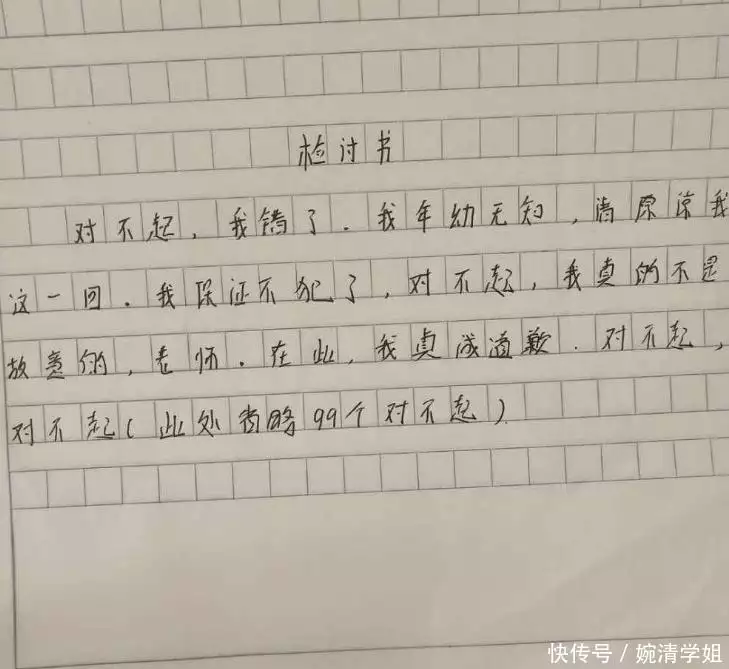 检讨书
对不起,我错了.我年幼无知,请原谅我
这一回.我保证不犯了,对不起,我真的不是
故意的,老师.在此,我真诚道歉.对不起,
对不起(此处省略99个对不起)
快传号/婉清学姐